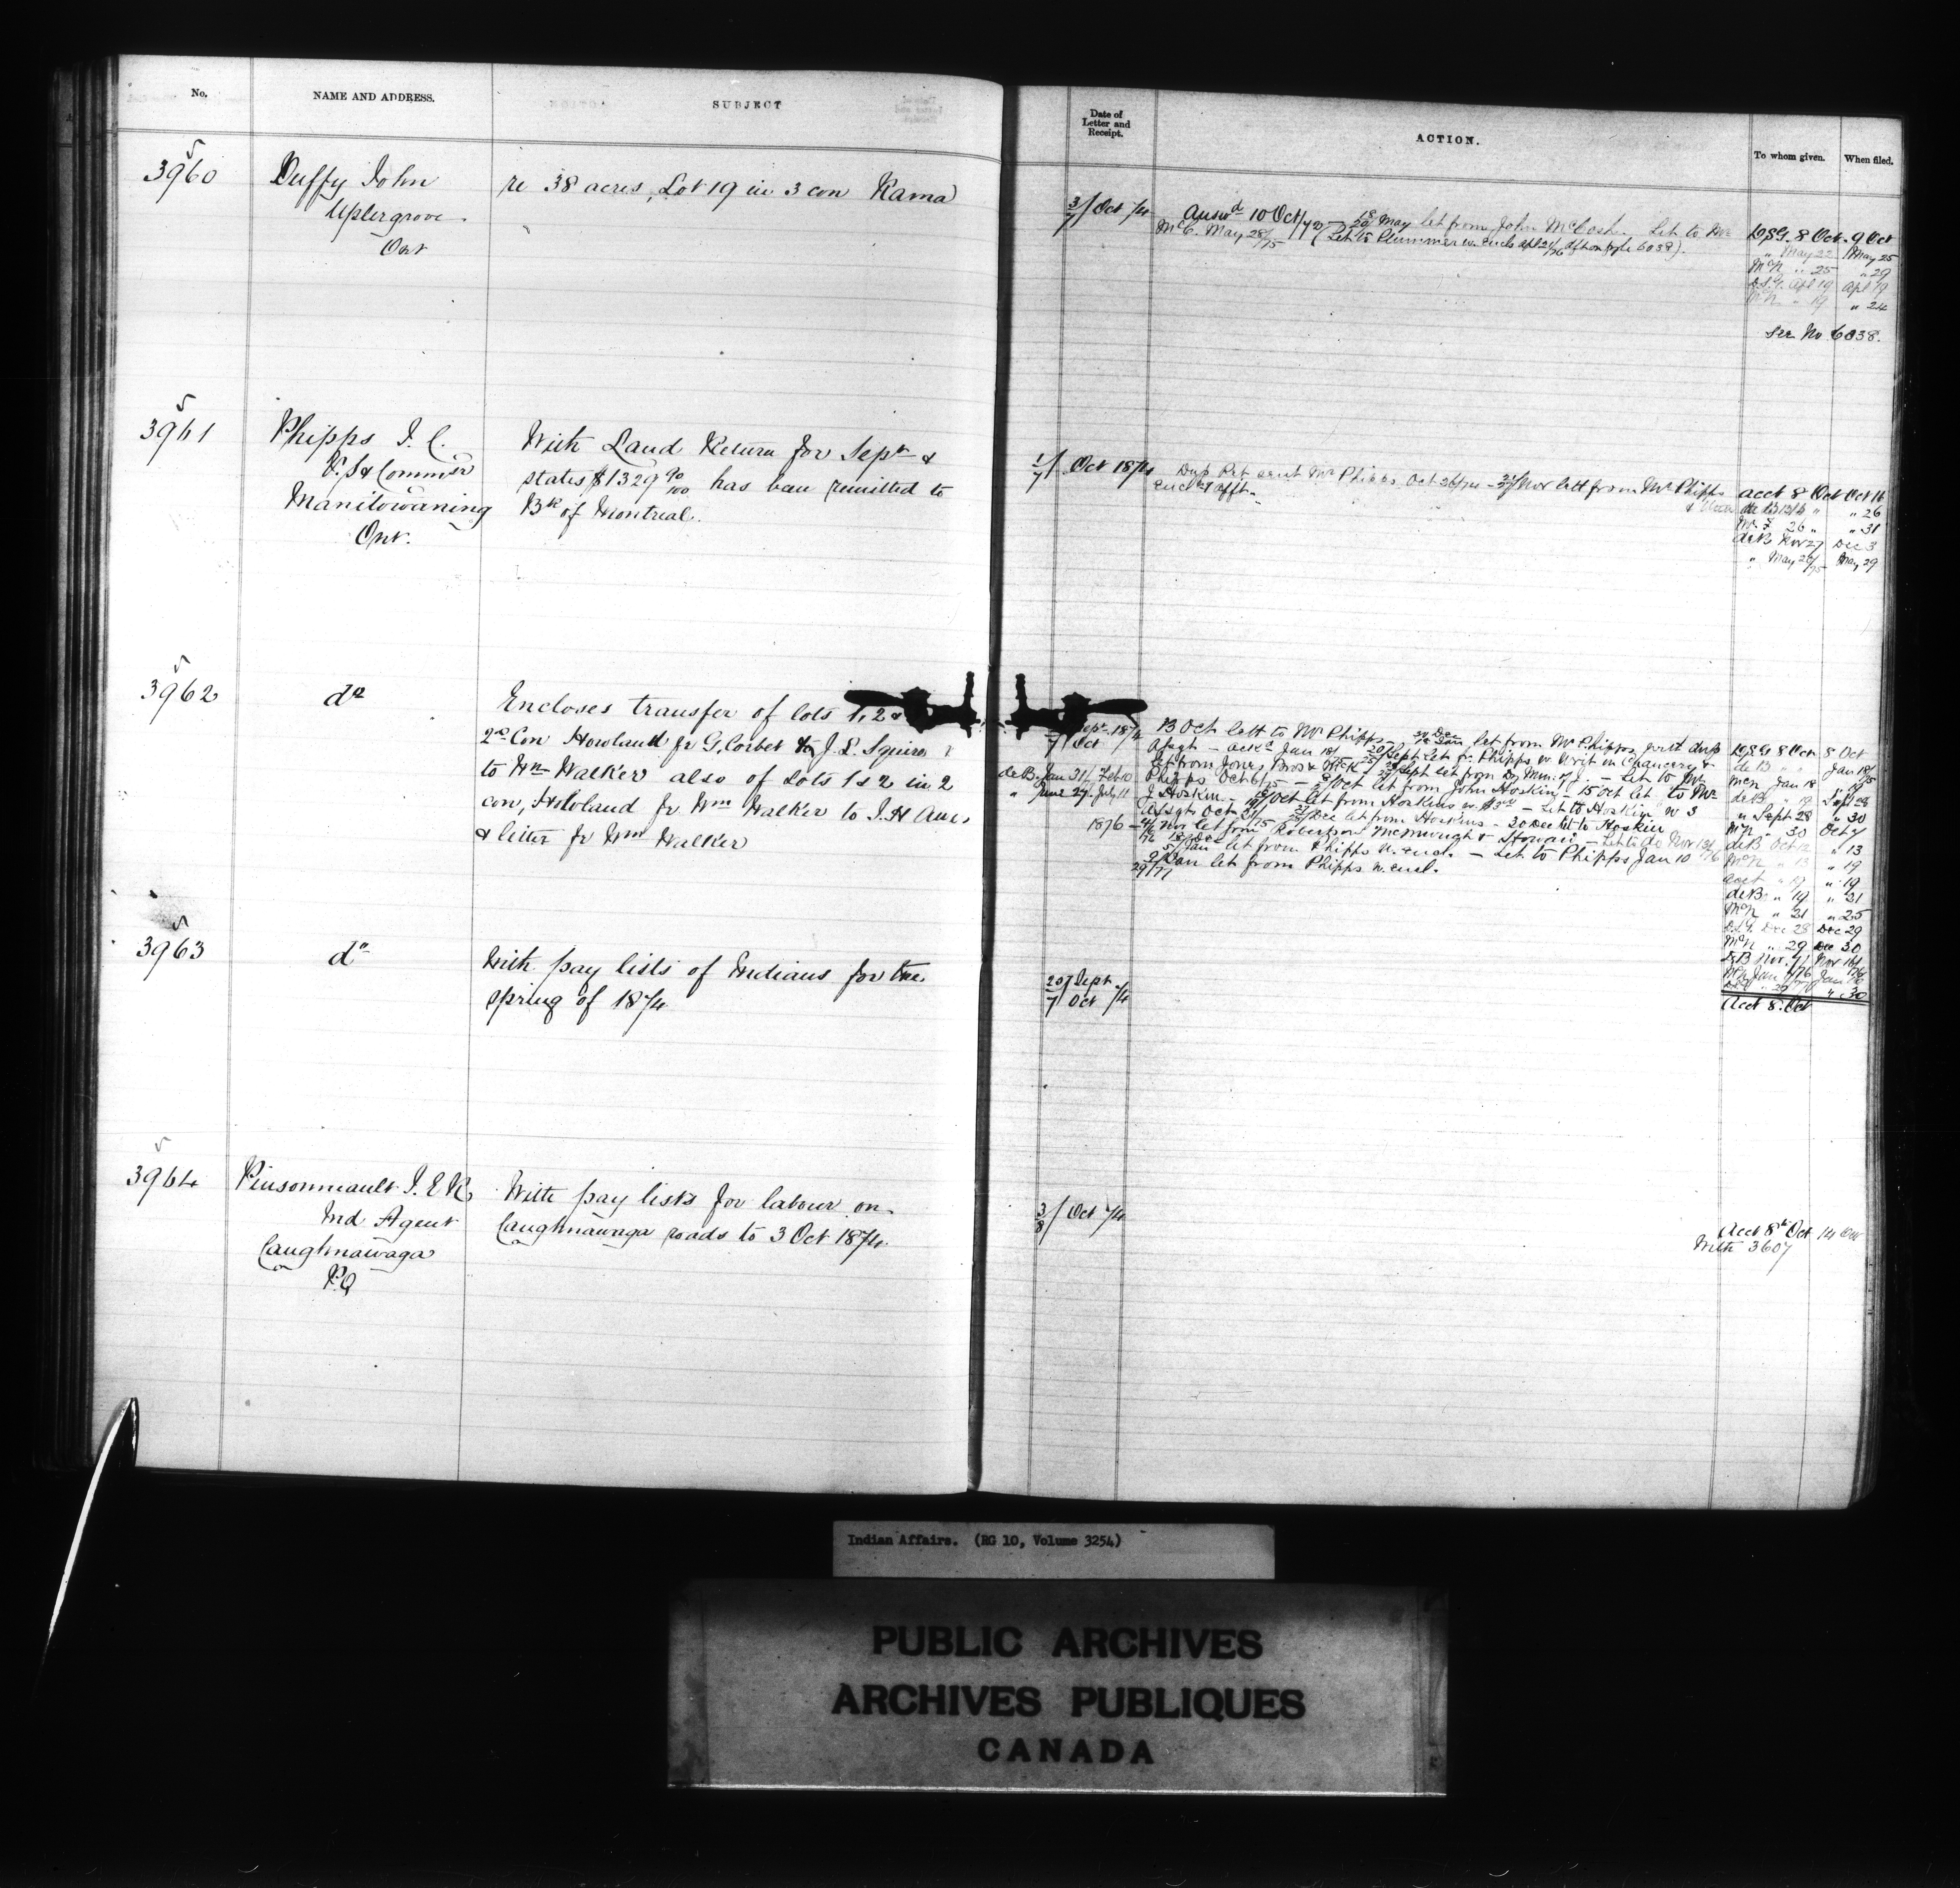 No.
NAME AND ADDRESS.
SUBJECT
5
3960
Duffy John
Uptergrove
Ont
re 38 acres, Lot 19 in 3 con Rama
5
3961
Phipps J. C.
V. S & Commr
Manitowaning
Ont.
With Land Return for Sept &
states $1329 90/100 has been remitted to
Bk of Montreal.
5
3962
do
Encloses transfer of lots 1, 2 &
2nd Con Howland fr G. Corbet to J. L. Squires
to Wm Walker also of Lots 1 & 2 in 2
con, Howland fr Wm Walker to J. H
& letter fr Wm Walker
5
3963
do
With pay lists of Indians for the
spring of 1874
5
3964
Pinsonneault J. E R
Ind Agent
Caughnawaga
P.Q
With pay lists for labour on
Caughnawaga roads to 3 Oct 1874
Date of
Letter and
Receipt.
ACTION.
To whom given.
When filed.
3/7 Oct 74
Answd 10 Oct/74 18/20 May let from John McCosh. Let to
McC. May 28/75 (Let to Plummer w. encls apl 21/76 6038).
8 Oct. 9 Oct
" May 22 May 25
McN " 25 " 29
Apl 19 Apl 19
" 19 " 24
See No 6038.
1/7 Oct 1874
Dup Ret sent Mr Phipps Oct 26/74 Nov lett from Mr Phipps
encl afft.
acct 8 Oct Oct 16
" 26
26 " " 31
deB Nov 27 Dec 3
" May 28/75 May 29
Sept 1874
7 Oct
13 Oct lett to Mr Phipps let from Mr Phipps
Jan 18/ Sept let fr Phipps w Writ in Chancery &
let from Jones Bros & Sept let from Dy Min. of J. Let to Mr
deB. Jan 31/ Feb 10
Phipps Oct 6/75 Oct let from John Hoskin 15 Oct let to Mr
" June 27. July 11
J Hoskin Oct let from Hoskins w. Let to Hoskin w 3
Assgts Oct 21/75 Dec let from Hoskins 20 Dec let to Hoskin
1876
Nov let from Robertson McMurough & Let to do Nov 13/
Jan let from Phipps w. encl. Let to Phipps Jan 10/76
Jan let from Phipps w. encl.
29/77
8 Oct 8 Oct
deB Jan 18/75
McN Jan 18 " 19
deB " 19 Sept 28
" Sept 28 " 30
McN " 30 Oct 7
deB Oct 12 " 13
McN " 13 " 19
acct " 19 " 19
deB " 19 " 21
McN " 21 " 25
Dec 28 Dec 29
McN " 29 Dec 30
" 30
20/ Sept
7 Oct 74
Acct 8. Oct
3/8 Oct 74
Acct 8th Oct 14 Oct
With 3607
Indian Affairs. (RG 10, Volume 3254)
PUBLIC ARCHIVES
ARCHIVES PUBLIQUES
CANADA